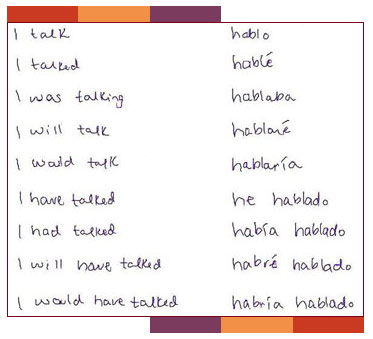 I talk hablo
I talked hablé
I was talking hablaba
I will talk hablaré
I would talk hablaría
I have talked he hablado
I had talked había hablado
I will have talked habré hablado
I would have talked habría hablado